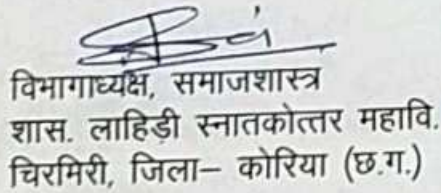 विभागाध्यक्ष, समाजशास्त्र
शास. लाहिडी स्नातकोत्तर महावि.
चिरमिरी, जिला– कोरिया (छ.ग.)